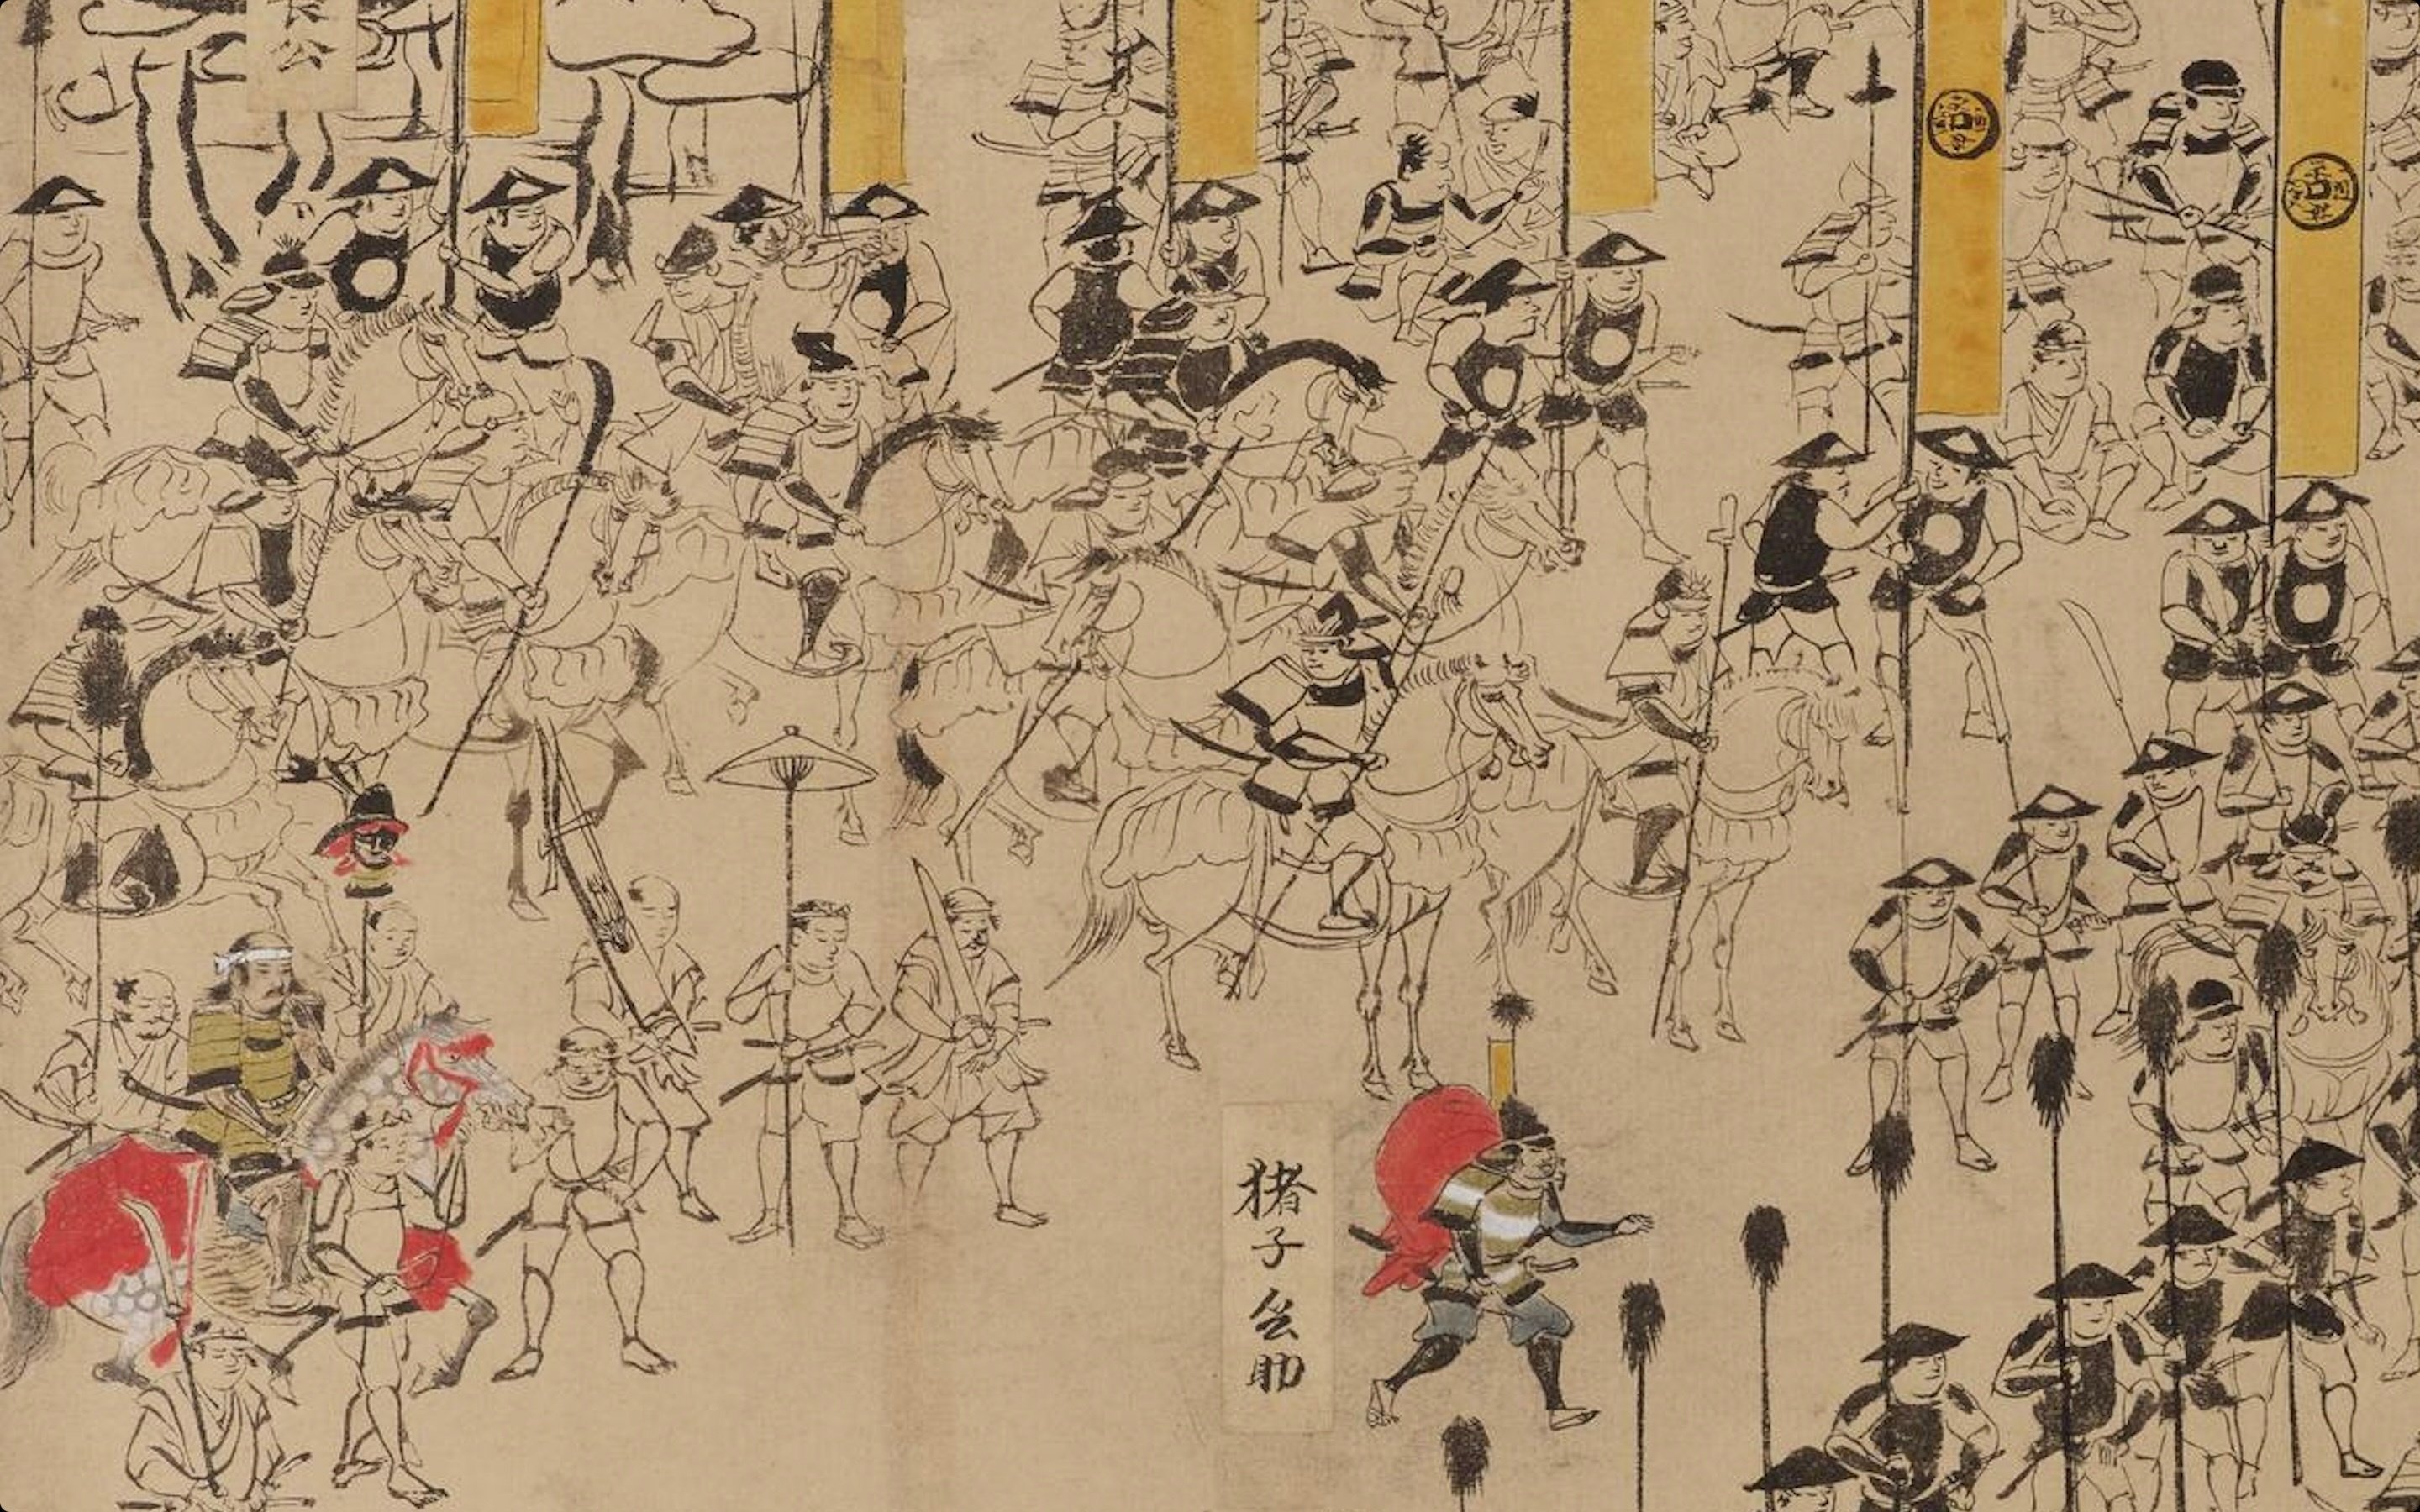 長公
猪子兵助